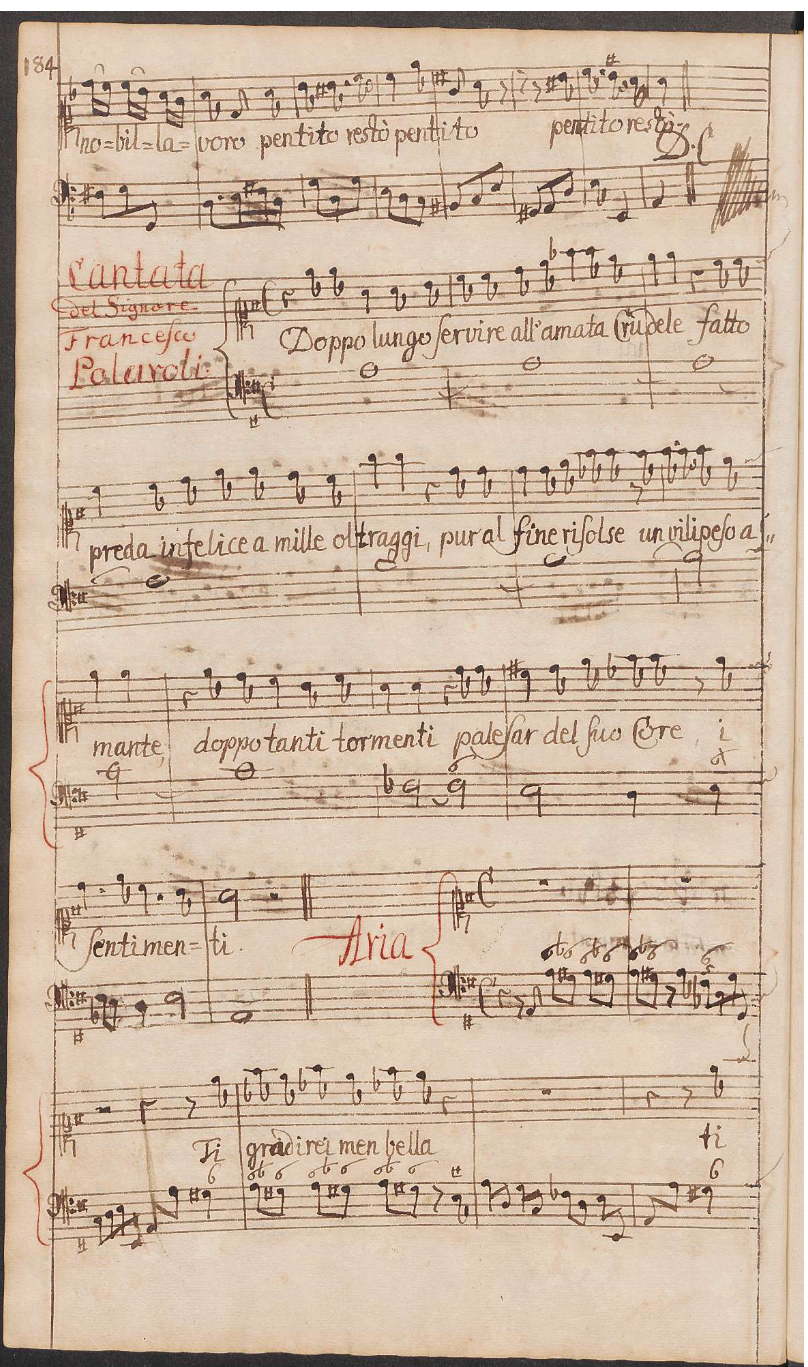 184
no=bil=la=voro pentito restò pentito pentito restò
D.C
Cantata
del Signore
Francesco
Polaroli.
Doppo lungo servire all'amata Crudele fatto
preda infelice a mille oltraggi, pur al fine risolse un vilipeso a„
mante, doppo tanti tormenti palesar del suo Core i
6 6
sentimen=ti.
Aria
6b6 6b6 6b6 6
Ti gradirei men bella ti
6 6b 6 6b6 6b6 6